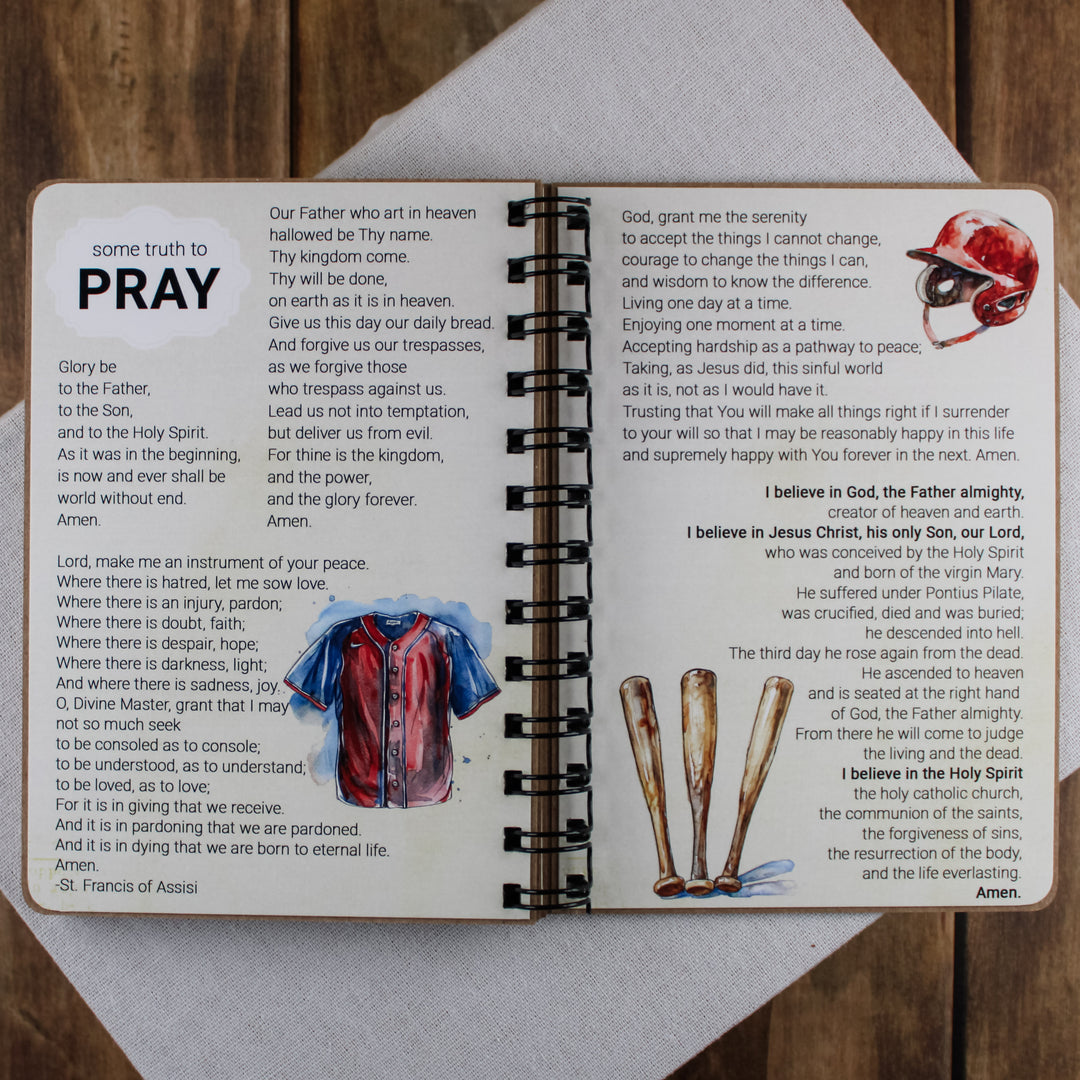 some truth to
PRAY
Glory be
to the Father,
to the Son,
and to the Holy Spirit.
As it was in the beginning,
is now and ever shall be
world without end.
Amen.
Our Father who art in heaven
hallowed be Thy name.
Thy kingdom come.
Thy will be done,
on earth as it is in heaven.
Give us this day our daily bread.
And forgive us our trespasses,
as we forgive those
who trespass against us.
Lead us not into temptation,
but deliver us from evil.
For thine is the kingdom,
and the power,
and the glory forever.
Amen.
Lord, make me an instrument of your peace.
Where there is hatred, let me sow love.
Where there is an injury, pardon;
Where there is doubt, faith;
Where there is despair, hope;
Where there is darkness, light;
And where there is sadness, joy.
O, Divine Master, grant that I may
not so much seek
to be consoled as to console;
to be understood, as to understand;
to be loved, as to love;
For it is in giving that we receive.
And it is in pardoning that we are pardoned.
And it is in dying that we are born to eternal life.
Amen.
-St. Francis of Assisi
God, grant me the serenity
to accept the things I cannot change,
courage to change the things I can,
and wisdom to know the difference.
Living one day at a time.
Enjoying one moment at a time.
Accepting hardship as a pathway to peace;
Taking, as Jesus did, this sinful world
as it is, not as I would have it.
Trusting that You will make all things right if I surrender
to your will so that I may be reasonably happy in this life
and supremely happy with You forever in the next. Amen.
I believe in God, the Father almighty,
creator of heaven and earth.
I believe in Jesus Christ, his only Son, our Lord,
who was conceived by the Holy Spirit
and born of the virgin Mary.
He suffered under Pontius Pilate,
was crucified, died and was buried;
he descended into hell.
The third day he rose again from the dead.
He ascended to heaven
and is seated at the right hand
of God, the Father almighty.
From there he will come to judge
the living and the dead.
I believe in the Holy Spirit
the holy catholic church,
the communion of the saints,
the forgiveness of sins,
the resurrection of the body,
and the life everlasting.
Amen.